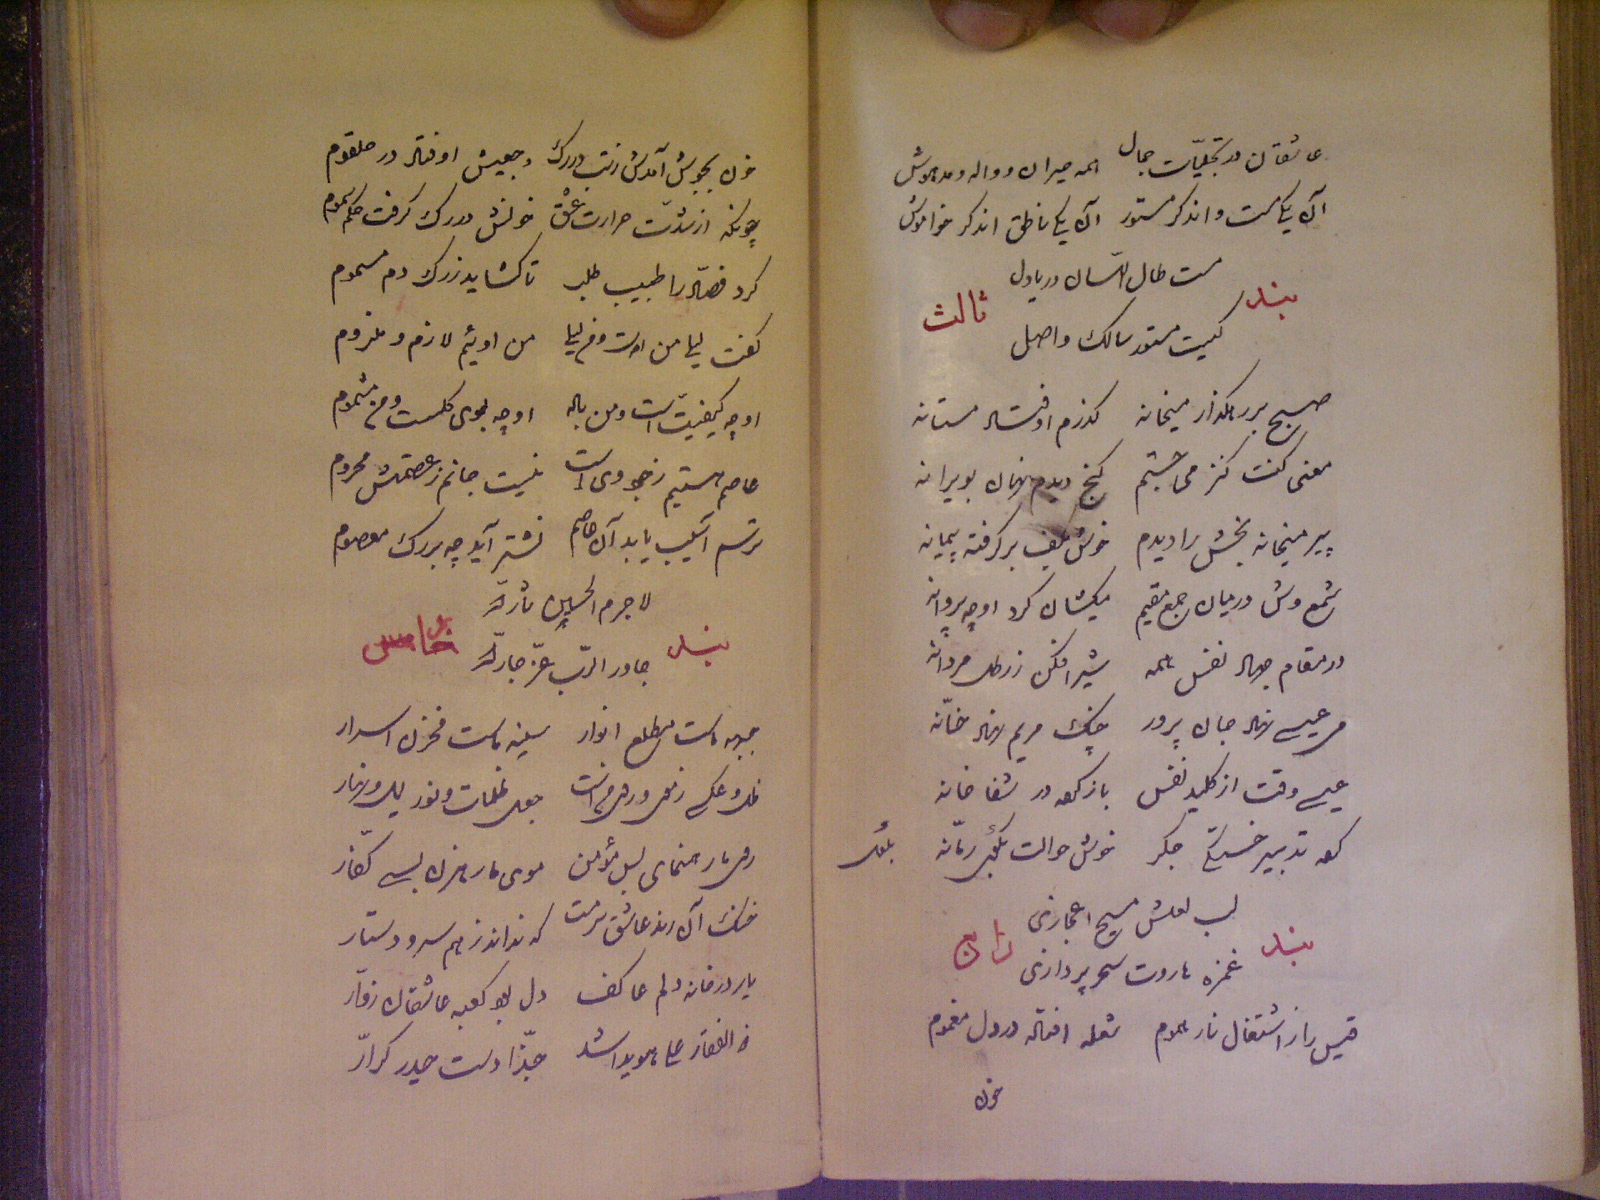 عاشقان در تجلیّات جمال همه حیران و واله و مدهوش
آن یکی مست و اندکر مستور آن یکی ناطق اندکر خواموش
مست طال اللّسان دریادل
بند ثالث
کیست مستور سالک واصل
صبح بر رهکذار میخانه کذرم اوفتاد مستانه
معنی کنت کنز می جستم کنج دیدم نهان بویرانه
پیر میخانه بخش را دیدم خوش بکف بر کرفته پیمانه
شمع وش در میان جمع مقیم میکشان کرد او چه پروانه
در مقام جهاد نفس همه شیر افکن ز رطل مردانه
می عیسی نهاد جان پرور چنک مریم نهاد حنّانه
عیسی وقت از کلید نفس باز کرد در شفا خانه
کرد تدبیر خستکی جکر خوش حوالت بلعل رمّانه
بلعل
لب لعلش مسیح اعجازی
بند رابع
غمزه هاروت سحر پردازی
قیس را ز اشتعال نار هموم شعله افتاد در دل مغموم
خون
خون بجوش آمدش زتب در رک وجعیش اوفتاد در حلقوم
چونکه از شدّت حرارت عشق خونش در رک کرفت حکم سموم
کرد فصّاد را طبیب طلب تا کشاید ز رک دم مسموم
کفت لیلی من است و من لیلی من اویم لازم و ملزوم
او چه کیفیّت است و من باده او چه بوی کلست و من مشموم
عاصم هستیم ز هجو وی است نیست جانم ز عصمتش محروم
ترسم آسیب یابد آن عاصم نشتر آید چه بر رک معصوم
لاجرم الحسین ثاره
بند خامس
جاور الرّب عزّ جاره
جبهه ماست مطلع انوار سینه ماست مخزن اسرار
ظل و عکسی ز زلف و روی من است جعل ظلمات و نور لیل و نهار
روی ما رهنمای بس مؤمن موی ما رهزن بسی کفّار
خنک آن رند عاشق سرمست که نداند ز هم سر و دستار
یار در خانه دلم عاکف دل بود کعبه عاشقان زوّار
ذوالفقار علی هویدا شد حبّذا دست حیدر کرّار